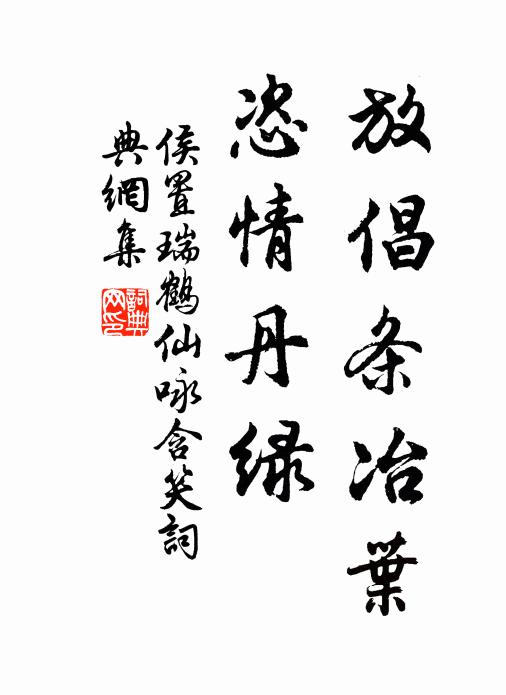 放倡条冶葉
恣情丹緑
侯置瑞鶴仙咏含笑詞
典網集
詞典網印